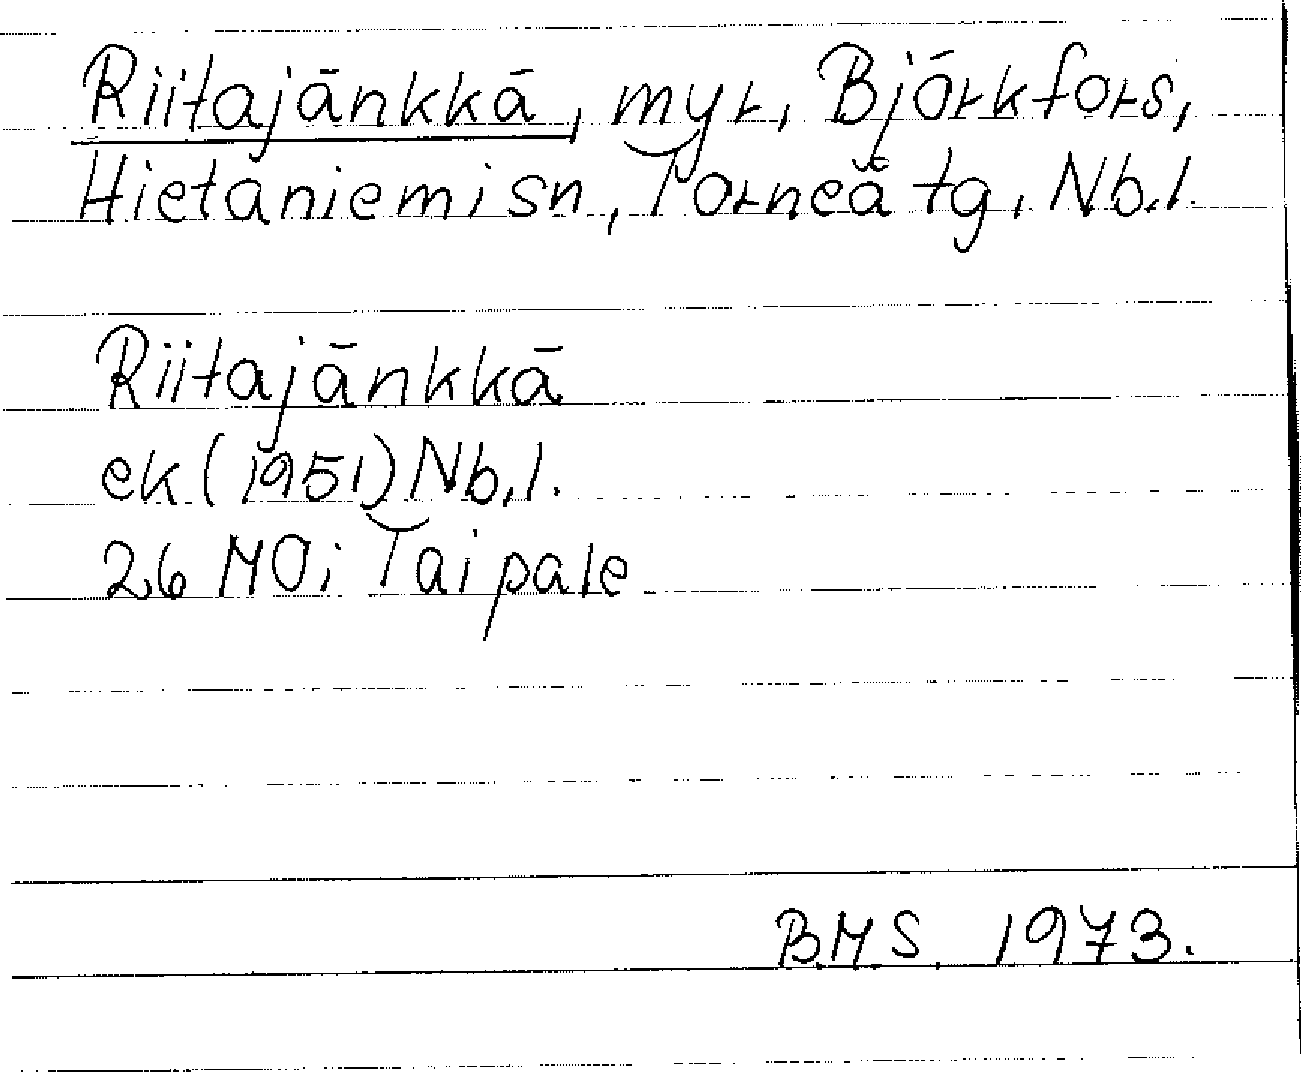 Riitajänkkä, myr, Björkfors,
Hietaniemi sn, Torneå tg, Nb.l.
Riitajänkkä
ek (1951) Nb.l.
26 M0i Taipale
B.M.S. 1973.